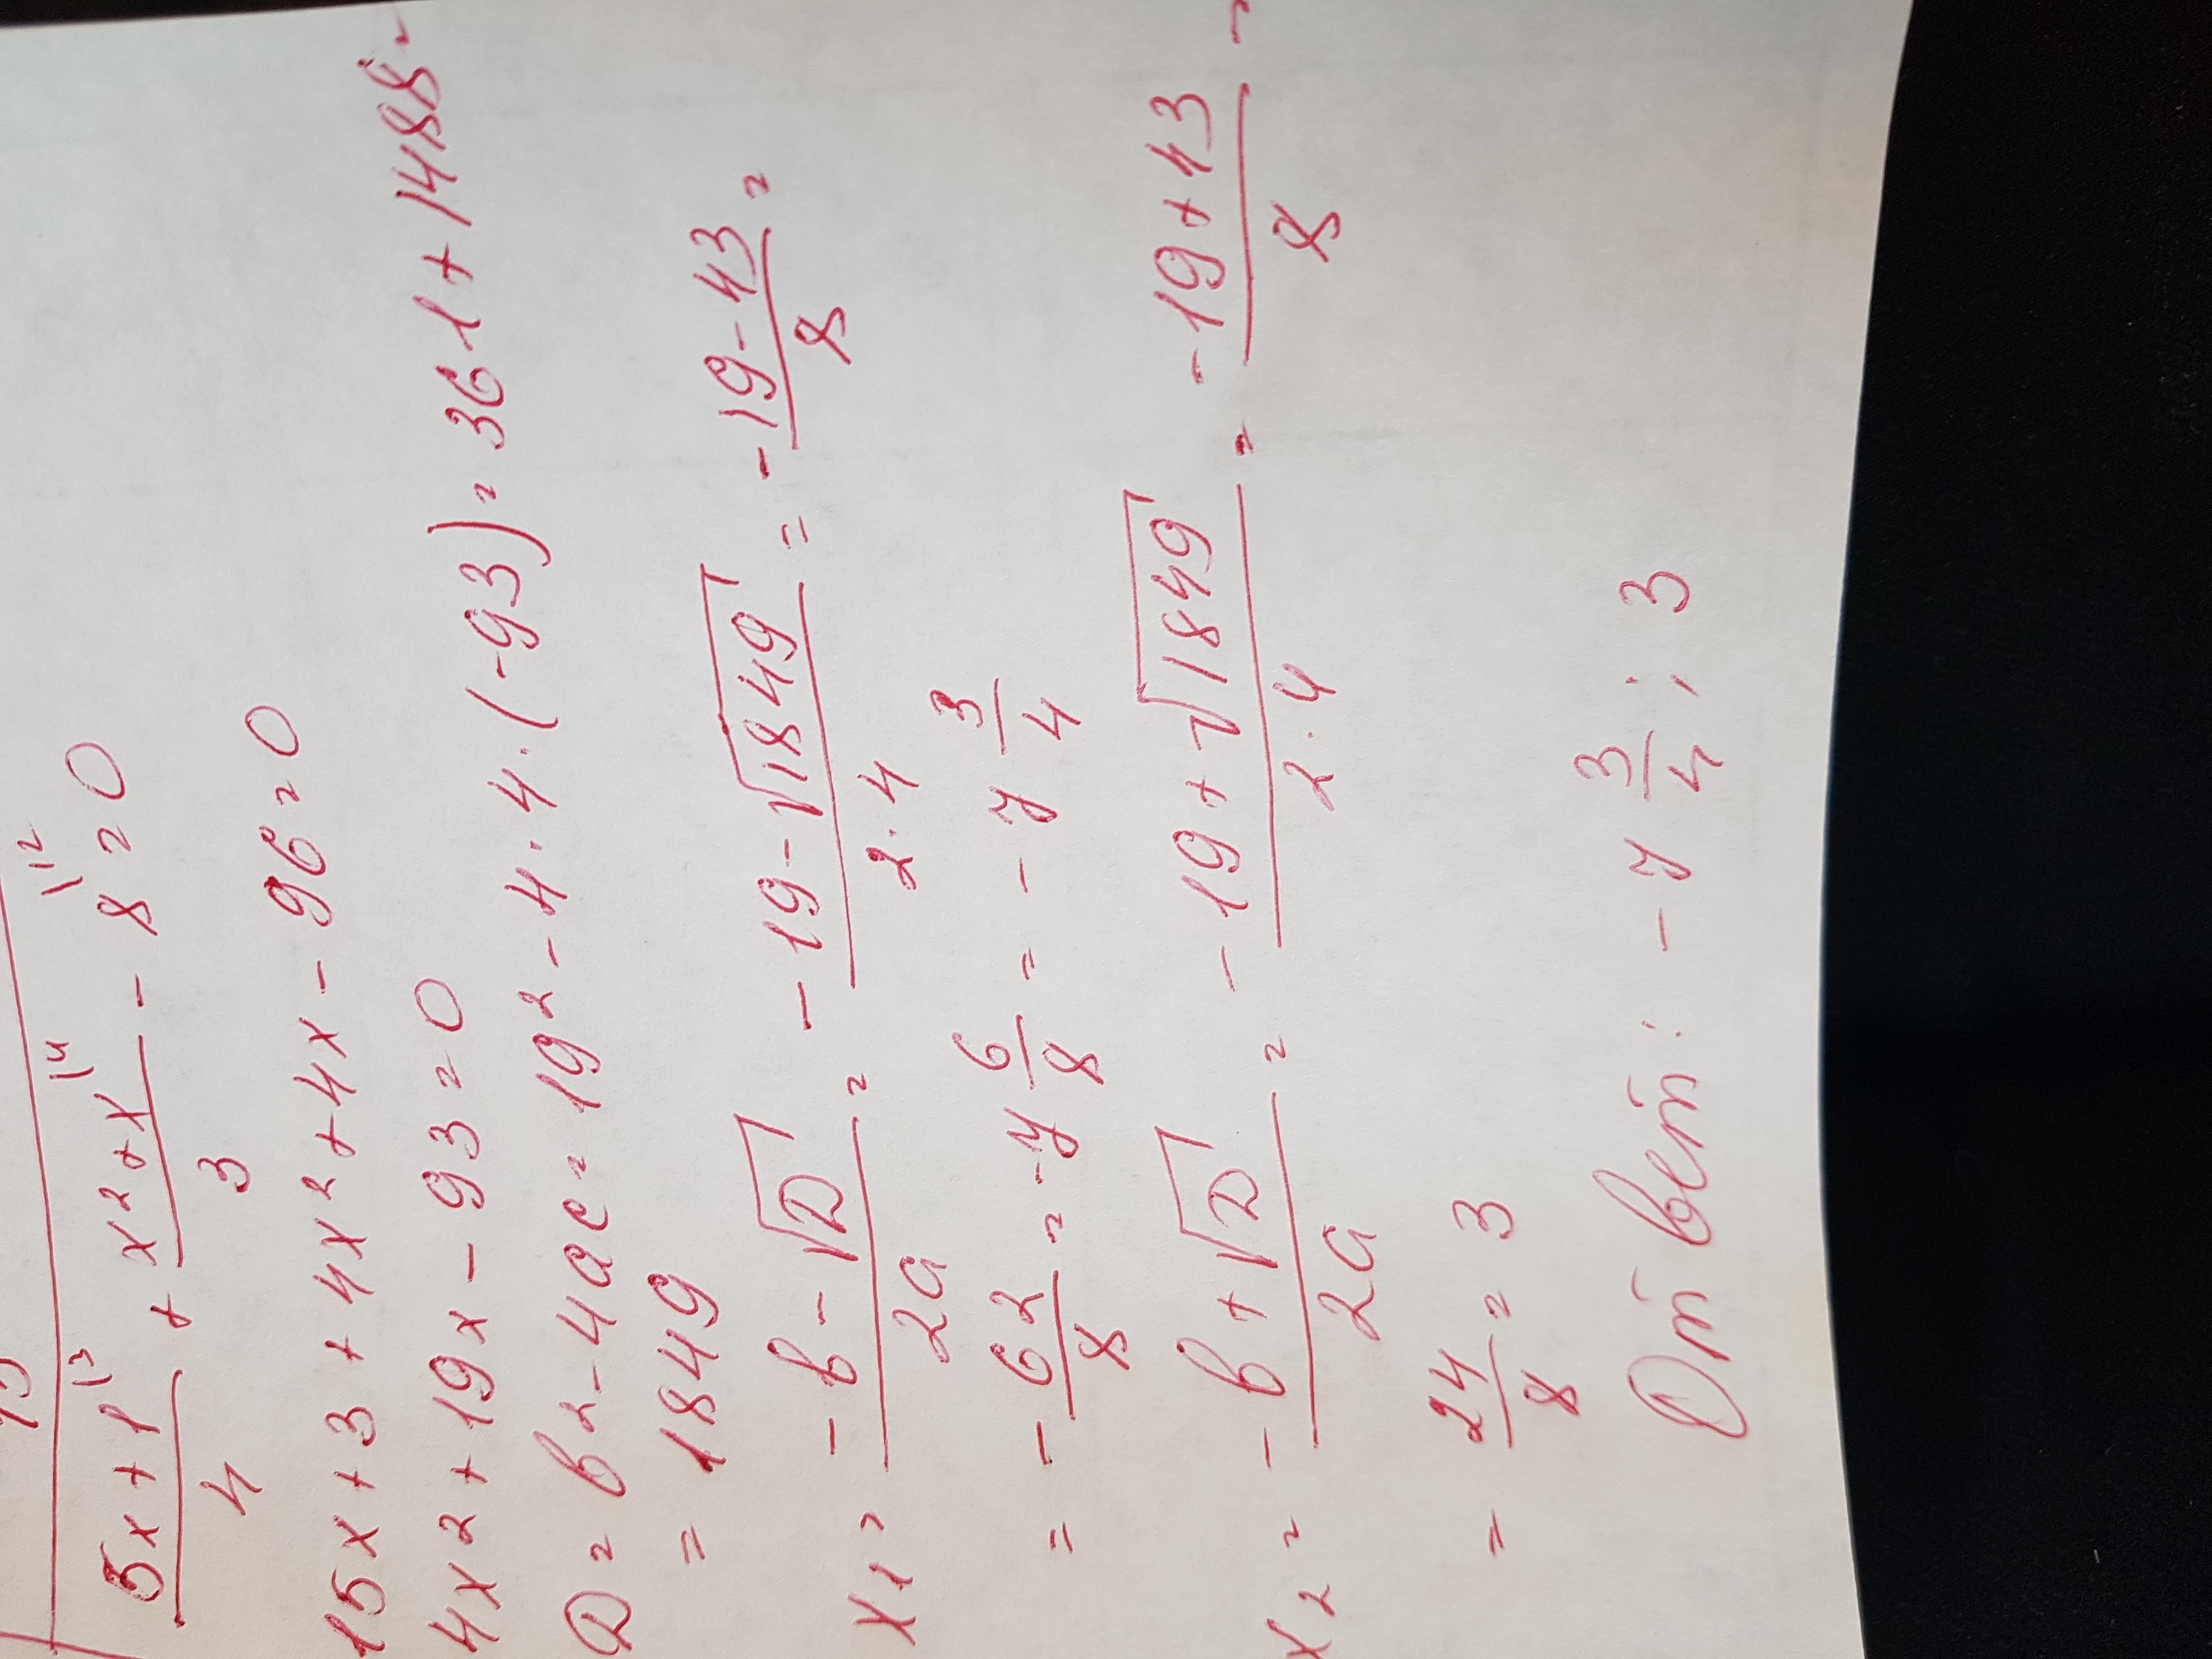 (5x+1)/4 |3 + (x²+x)/3 |4 - 8 |12 = 0
15x + 3 + 4x² + 4x - 96 = 0
4x² + 19x - 93 = 0
D = b² - 4ac = 19² - 4·4·(-93) = 361 + 1488 =
= 1849
x₁ = (-b - √D)/2a = (-19 - √1849)/2·4 = (-19 - 43)/8 =
= -62/8 = -7 6/8 = -7 3/4
x₂ = (-b + √D)/2a = (-19 + √1849)/2·4 = (-19 + 43)/8 =
= 24/8 = 3
Ответ: -7 3/4 ; 3